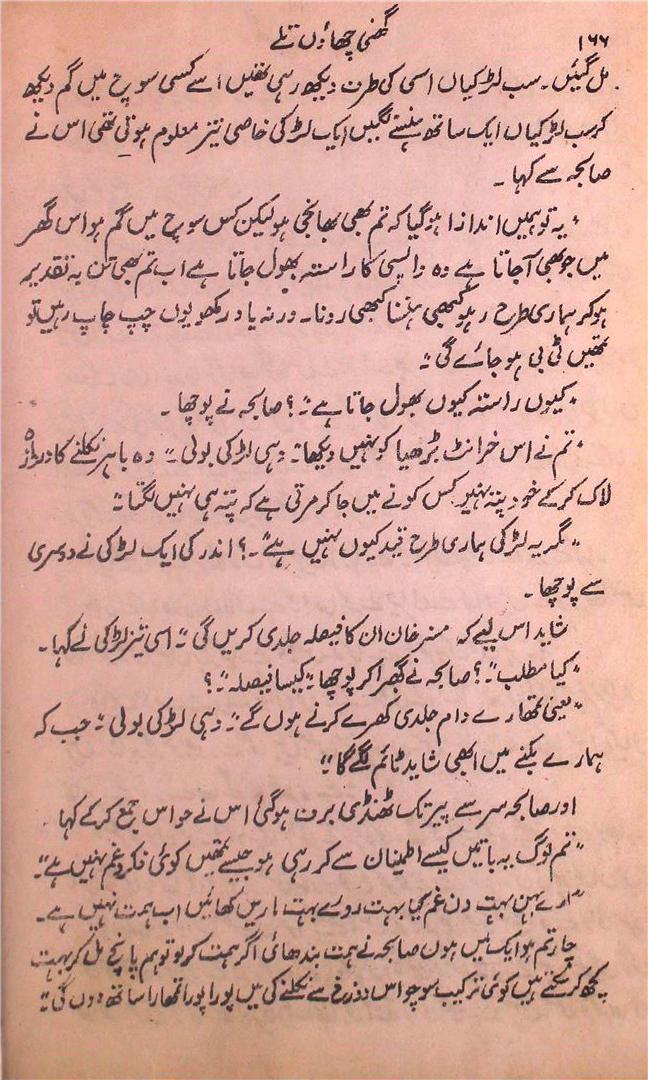 ۱۶۶
گھنی چھاؤں تلے
مل گئیں۔ سب لڑکیاں اسی کی طرف دیکھ رہی تھیں اسے کسی سوچ میں گم دیکھ
کر سب لڑکیاں ایک ساتھ ہنسنے لگیں ایک لڑکی خاصی تیز معلوم ہوتی تھی اس نے
صابحہ سے کہا۔
"یہ تو ہمیں اندازا ہو گیا کہ تم بھی بھانجی ہو لیکن کس سوچ میں گم ہو اس گھر
میں جو بھی آجاتا ہے وہ واپسی کا راستہ بھول جاتا ہے اب تم بھی تن بہ تقدیر
ہو کر ہماری طرح رہو کبھی ہنسنا کبھی رونا۔ ورنہ یاد رکھو یوں چپ چاپ رہیں تو
تمھیں ٹی بی ہو جائے گی"
"کیوں راستہ کیوں بھول جاتا ہے"؟ صابحہ نے پوچھا۔
"تم نے اس خرانٹ بڑھیا کو نہیں دیکھا" وہی لڑکی بولی" وہ باہر نکلنے کا دروازہ
لاک کر کے خود پتہ نہیں کس کونے میں جا کر مرتی ہے کہ پتہ ہی نہیں لگتا"
"مگر یہ لڑکی ہماری طرح قید کیوں نہیں ہے"۔؟ اندر کی ایک لڑکی نے دوسری
سے پوچھا۔
شاید اس لیے کہ منہ خان ان کا فیصلہ جلدی کریں گی" اسی تیز لڑکی نے کہا۔
"کیا مطلب"؟ صابحہ نے گھبرا کر پوچھا" کیسا فیصلہ"؟
"یعنی تمھارے دام جلدی کھرے کرنے ہوں گے" وہی لڑکی بولی" جب کہ
ہمارے بکنے میں ابھی شاید ٹائم لگے گا"
اور صابحہ سر سے پیر تک ٹھنڈی برف ہو گئی اس نے حواس جمع کر کے کہا
"تم لوگ یہ باتیں کیسے اطمینان سے کر رہی ہو جیسے تمھیں کوئی فکر و غم نہیں ہے"۔
"ارے بہن بہت دن غم کیا بہت روئے بہت ماریں کھائیں اب ہمت نہیں ہے۔
چار تم ہو ایک میں ہوں صابحہ نے ہمت بندھائی اگر ہمت کر لو تو ہم پانچ مل کر بہت
کچھ کر سکتے ہیں کوئی ترکیب سوچو اس دوزخ سے نکلنے کی میں پورا پورا تمھارا ساتھ دوں گی"